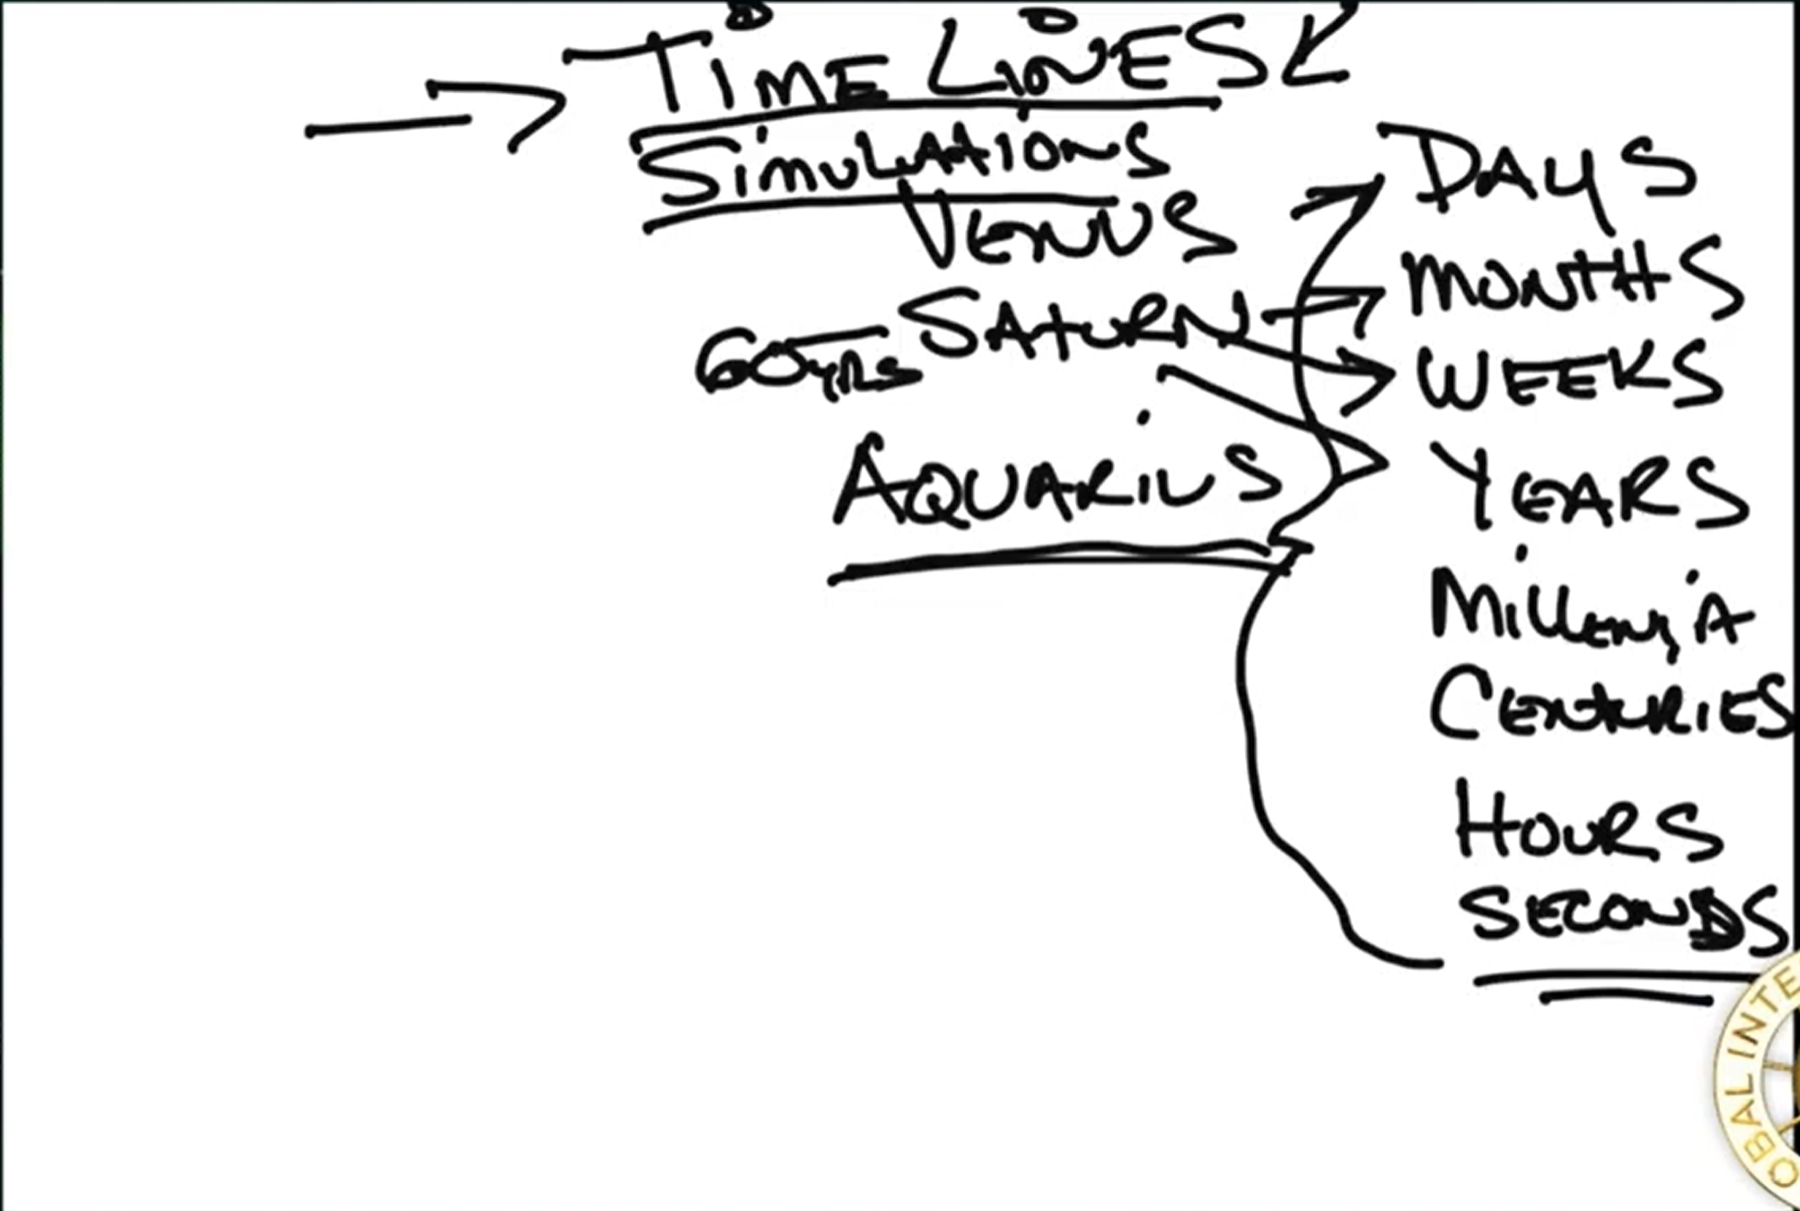 TIME LINES
SimuLAtions
VENUS
SATURN
60yRS
AQUARIUS
DAYS
MONTHS
WEEKS
YEARS
MillEniA
CENTURIES
HOURS
SECONDS
OBAL INTE